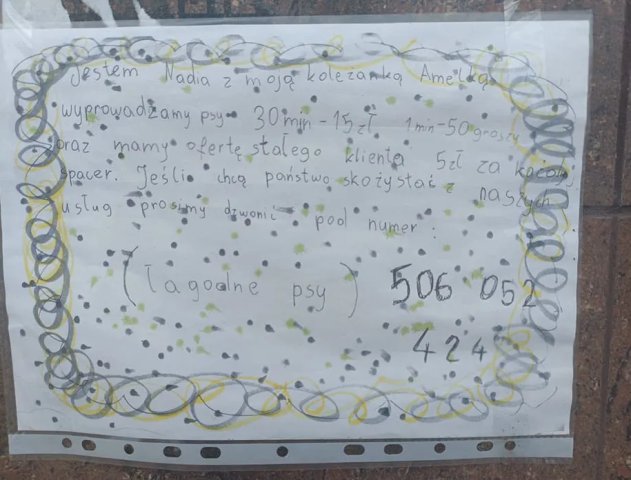 Jestem Nadia z moją koleżanką Amelką
wyprowadzamy psy- 30 min - 15 zł 1 min - 50 groszy
oraz mamy ofertę stałego klienta 5 zł za każdy
spacer. Jeśli chcą państwo skożystać z naszych
usług prosimy dzwonić pod numer:
(łagodne psy) 506 052
424